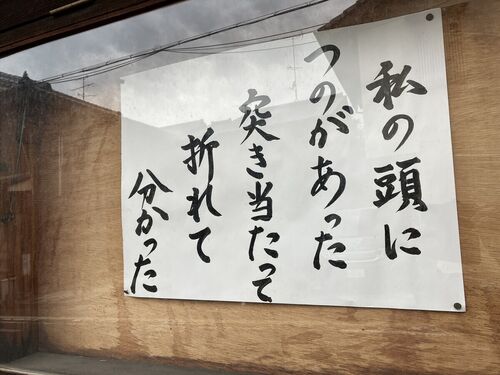 私の頭に
つのがあった
突き当たって
折れて
分かった